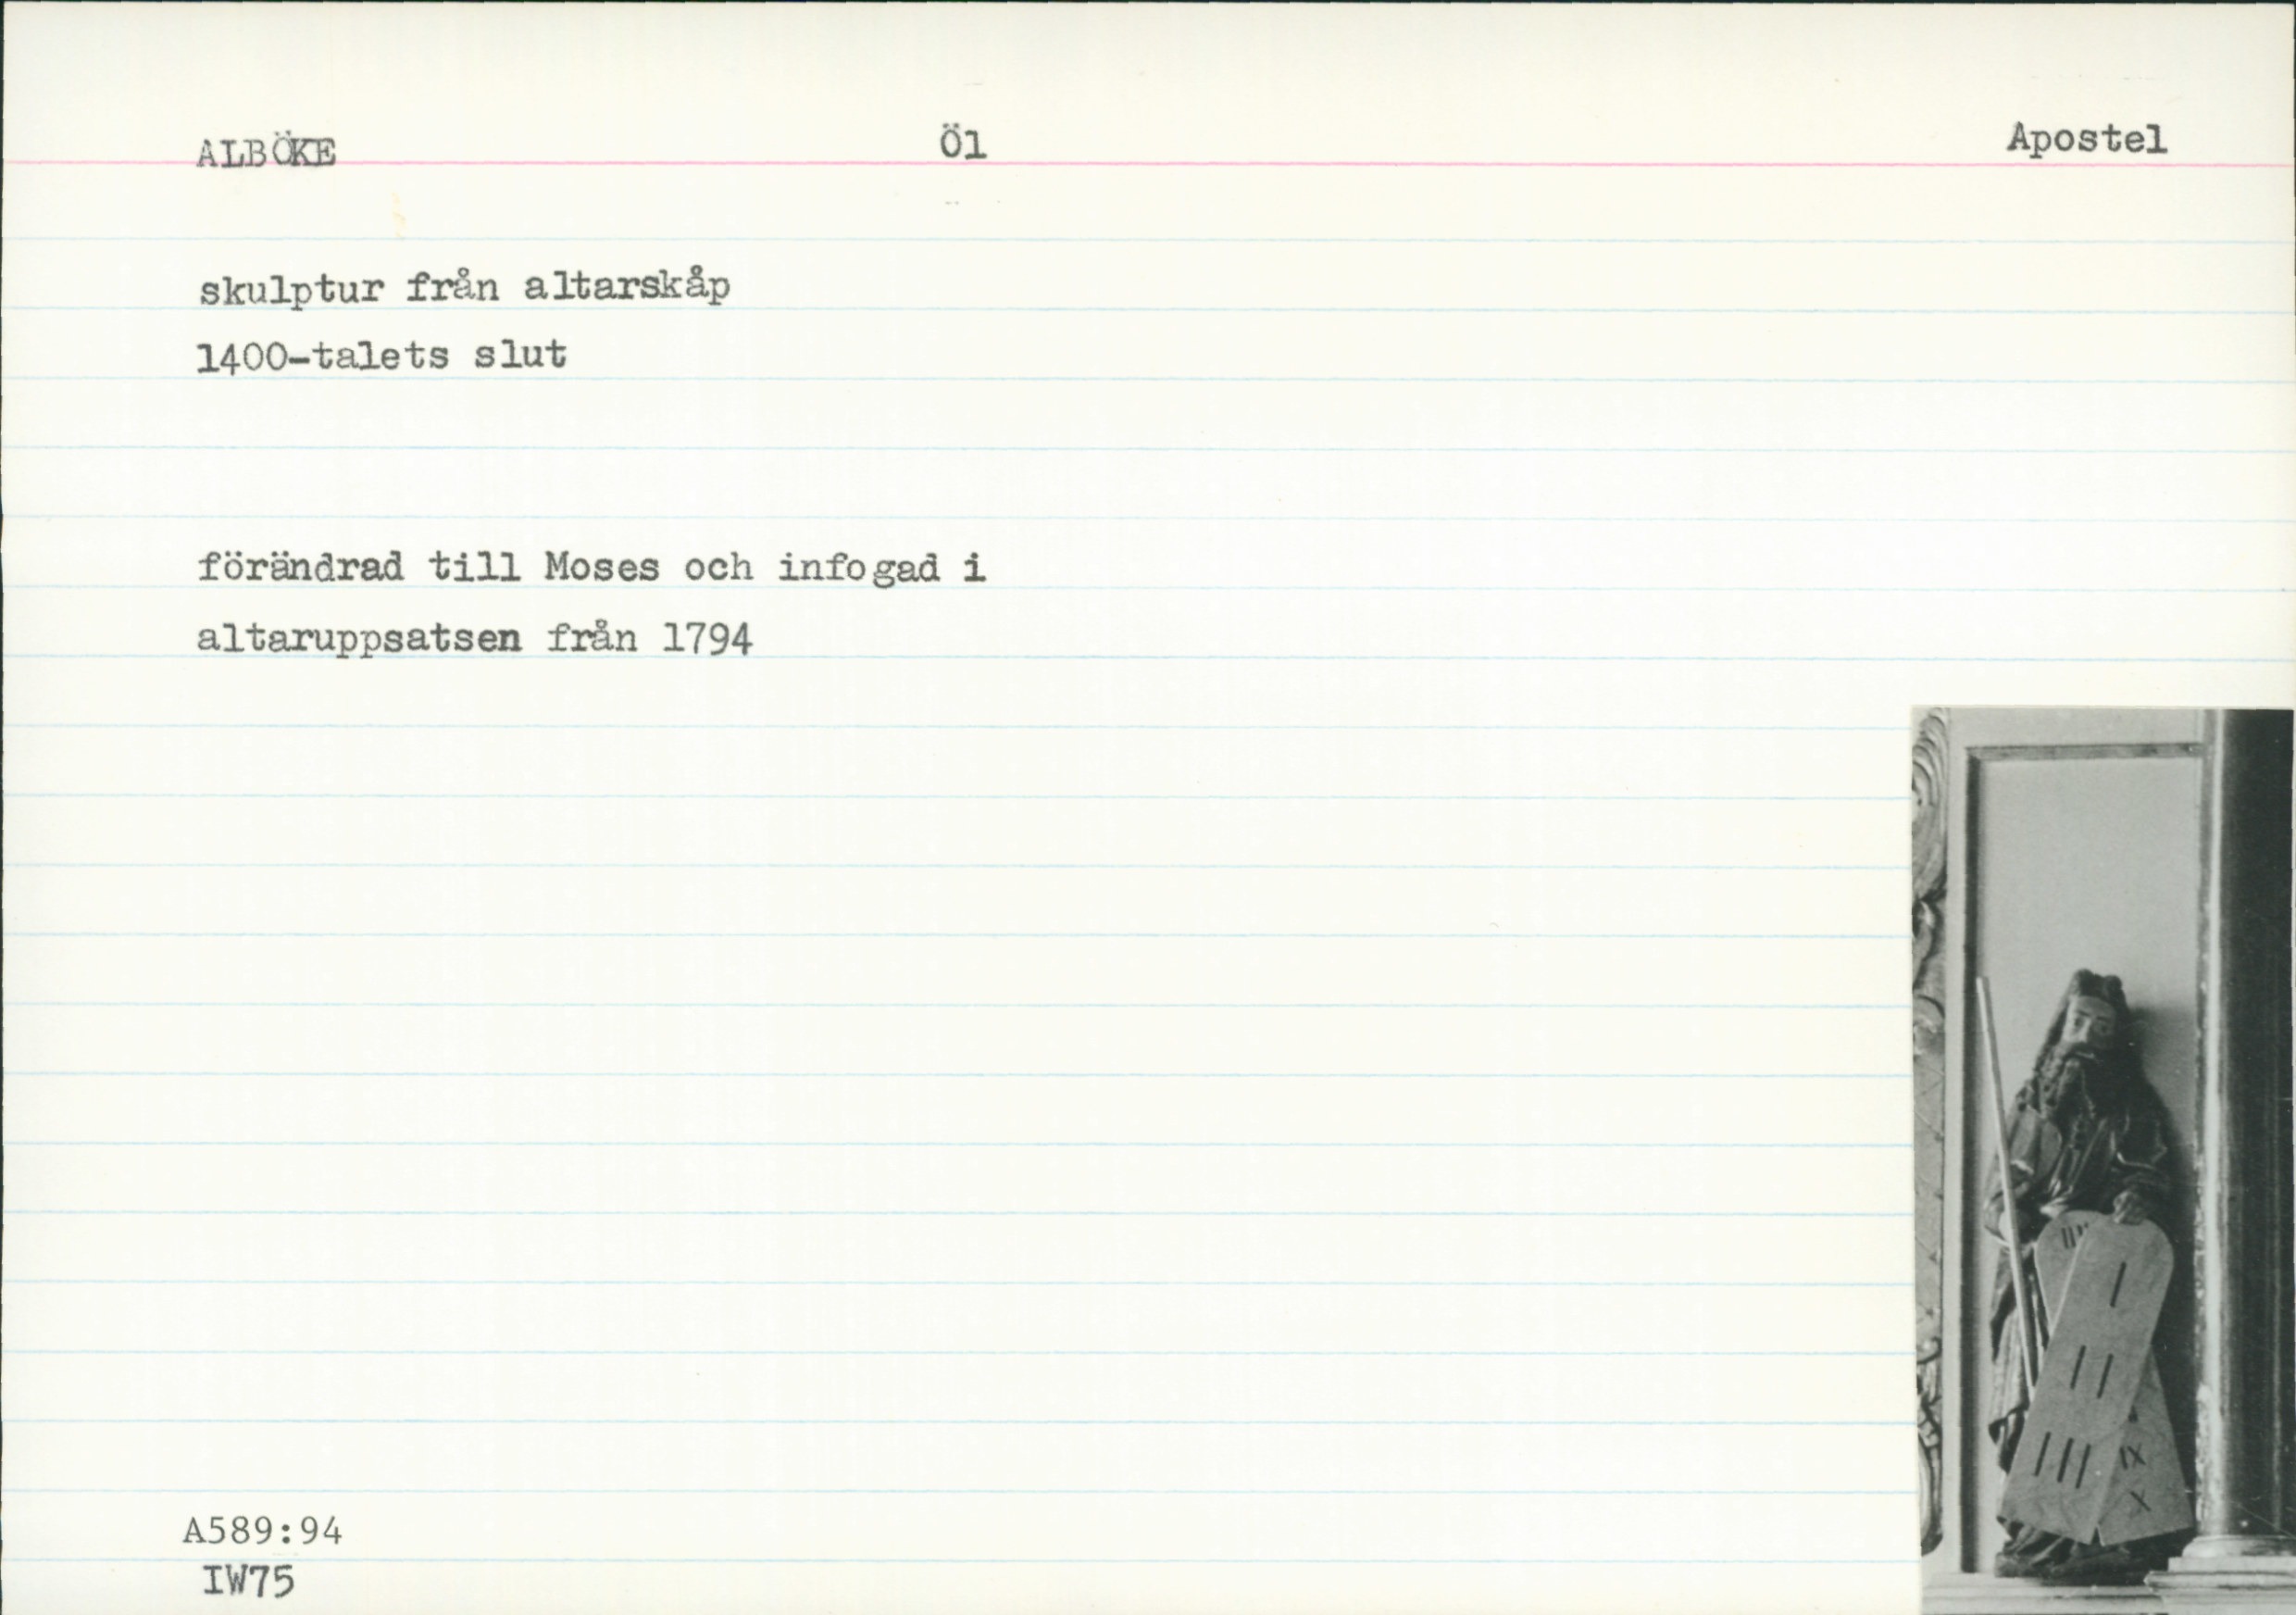 ALBÖKE Öl Apostel
skulptur från altarskåp
1400-talets slut
förändrad till Moses och infogad i
altaruppsatsen från 1794
I
II
III
IX
X
A589:94
IW75